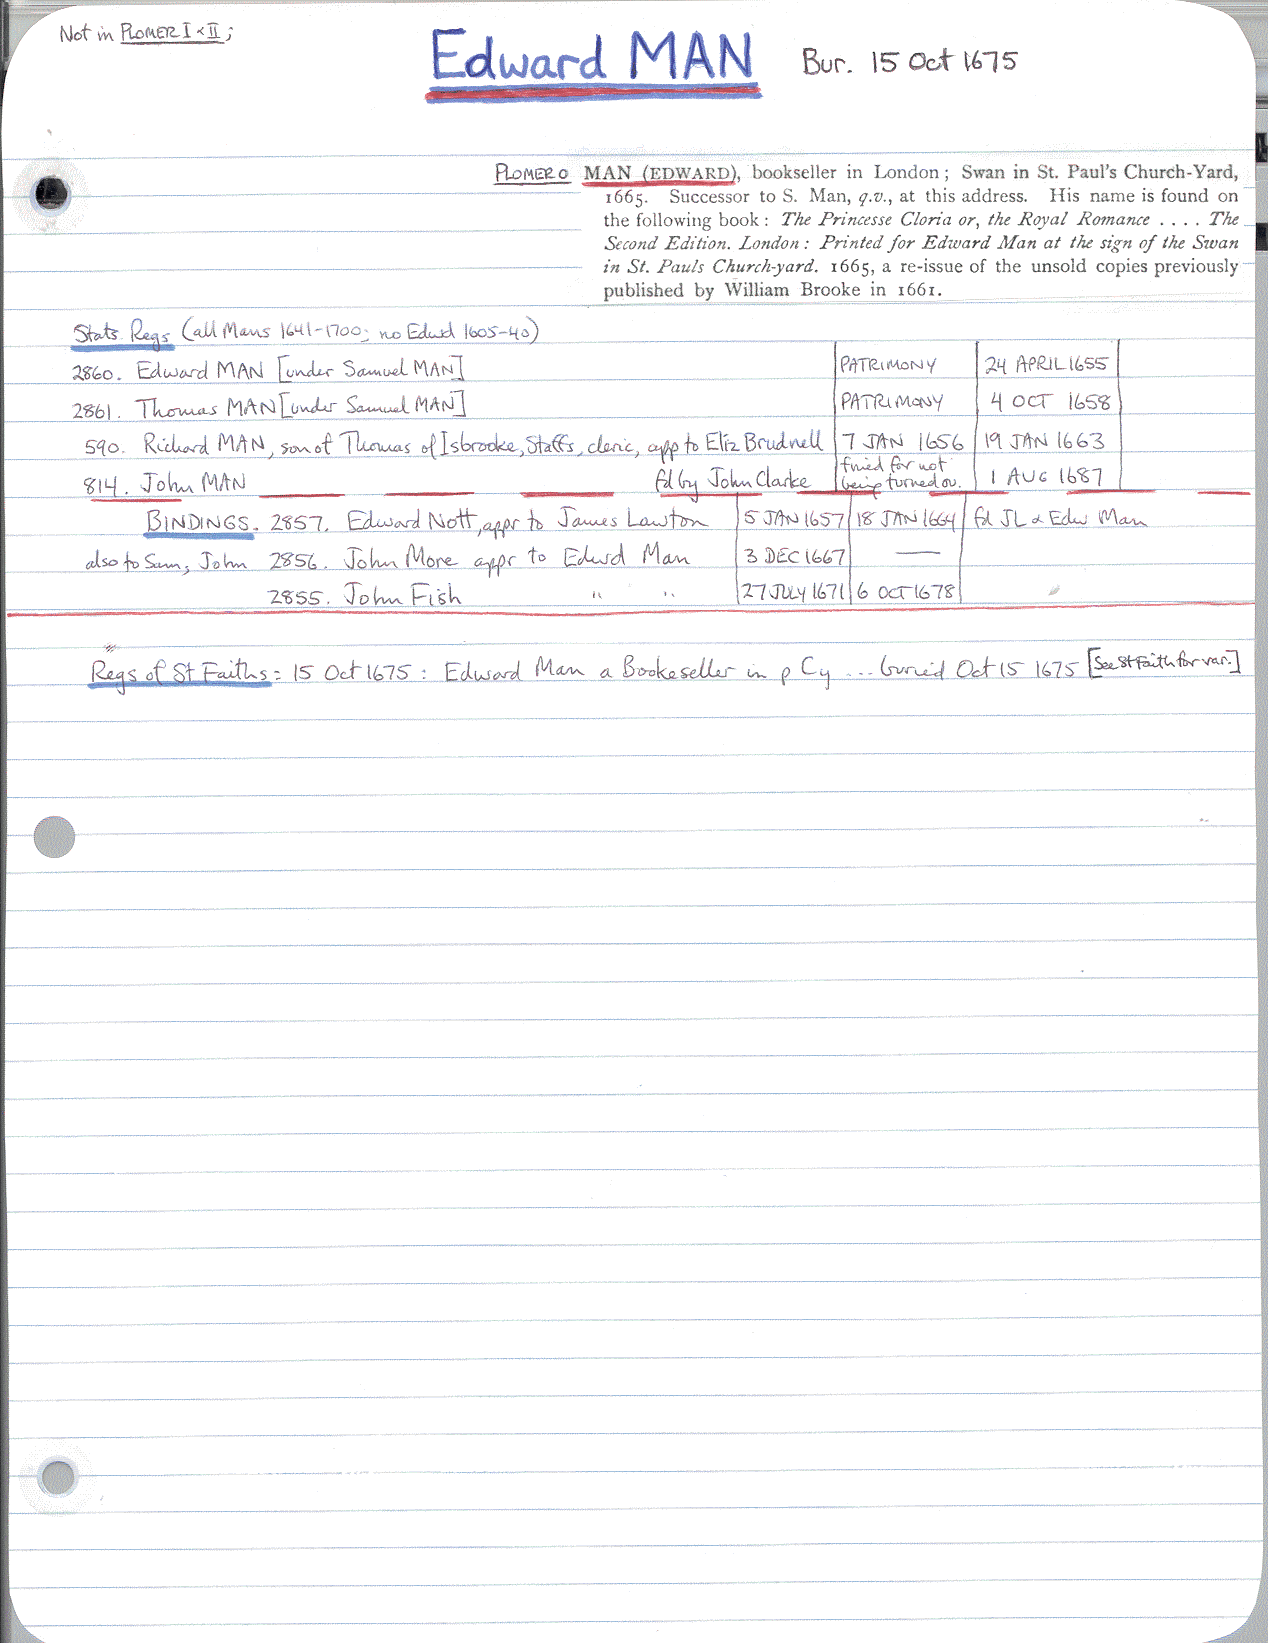 Not in PLOMER I & II;
Edward MAN Bur. 15 Oct 1675
PLOMER O MAN (EDWARD), bookseller in London; Swan in St. Paul's Church-Yard,
1665. Successor to S. Man, q.v., at this address. His name is found on
the following book: The Princesse Cloria or, the Royal Romance .... The
Second Edition. London: Printed for Edward Man at the sign of the Swan
in St. Pauls Church-yard. 1665, a re-issue of the unsold copies previously
published by William Brooke in 1661.
Stats Regs (all Mans 1641-1700; no Edwd 1605-40)
2860. Edward MAN [under Samuel MAN] PATRIMONY 24 APRIL 1655
2861. Thomas MAN [under Samuel MAN] PATRIMONY 4 OCT 1658
590. Richard MAN, son of Thomas of Isbrooke, Staffs, cleric, app to Eliz Brudnell 7 JAN 1656 19 JAN 1663
814. John MAN fd by John Clarke fined for not being turned ov. 1 AUG 1687
BINDINGS. 2857. Edward Nott, appr to James Lawton 5 JAN 1657 18 JAN 1664 fd JL & Edw Man
also to Sam, John 2856. John More appr to Edwd Man 3 DEC 1667 —
2855. John Fish " " 27 JULY 1671 6 OCT 1678
Regs of St Faiths: 15 Oct 1675: Edward Man a Bookeseller in p Cy ... buried Oct 15 1675 [See St Faith for var.]